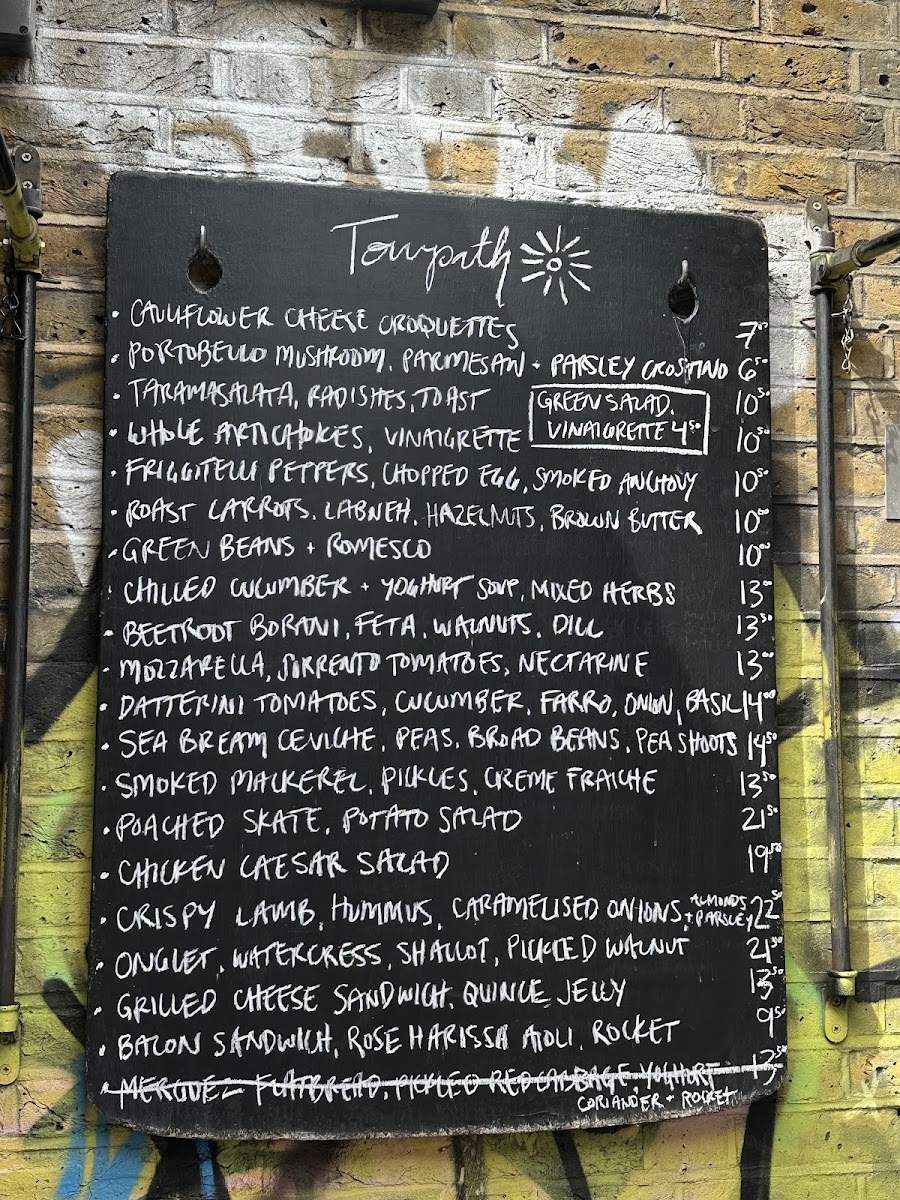 Towpath
• CAULIFLOWER CHEESE CROQUETTES 7⁰⁰
• PORTOBELLO MUSHROOM, PARMESAN + PARSLEY CROSTINO 6⁵⁰
• TARAMASALATA, RADISHES, TOAST 10⁵⁰
GREEN SALAD,
VINAIGRETTE 4⁵⁰
• WHOLE ARTICHOKES, VINAIGRETTE 10⁵⁰
• FRIGGITELLI PEPPERS, CHOPPED EGG, SMOKED ANCHOVY 10⁵⁰
• ROAST CARROTS, LABNEH, HAZELNUTS, BROWN BUTTER 10⁰⁰
• GREEN BEANS + ROMESCO 10⁰⁰
• CHILLED CUCUMBER + YOGHURT SOUP, MIXED HERBS 13⁰⁰
• BEETROOT BORANI, FETA, WALNUTS, DILL 13⁵⁰
• MOZZARELLA, SORRENTO TOMATOES, NECTARINE 13⁰⁰
• DATTERINI TOMATOES, CUCUMBER, FARRO, ONION, BASIL 14⁰⁰
• SEA BREAM CEVICHE, PEAS, BROAD BEANS, PEA SHOOTS 14⁵⁰
• SMOKED MACKEREL, PICKLES, CREME FRAICHE 13⁵⁰
• POACHED SKATE, POTATO SALAD 21⁵⁰
• CHICKEN CAESAR SALAD 19⁵⁰
• CRISPY LAMB, HUMMUS, CARAMELISED ONIONS, ALMONDS + PARSLEY 22⁵⁰
• ONGLET, WATERCRESS, SHALLOT, PICKLED WALNUT 21⁵⁰
• GRILLED CHEESE SANDWICH, QUINCE JELLY
• BACON SANDWICH, ROSE HARISSA AIOLI, ROCKET 9⁵⁰
• MERGUEZ FLATBREAD, PICKLED RED CABBAGE, YOGHURT 13⁵⁰
CORIANDER + ROCKET